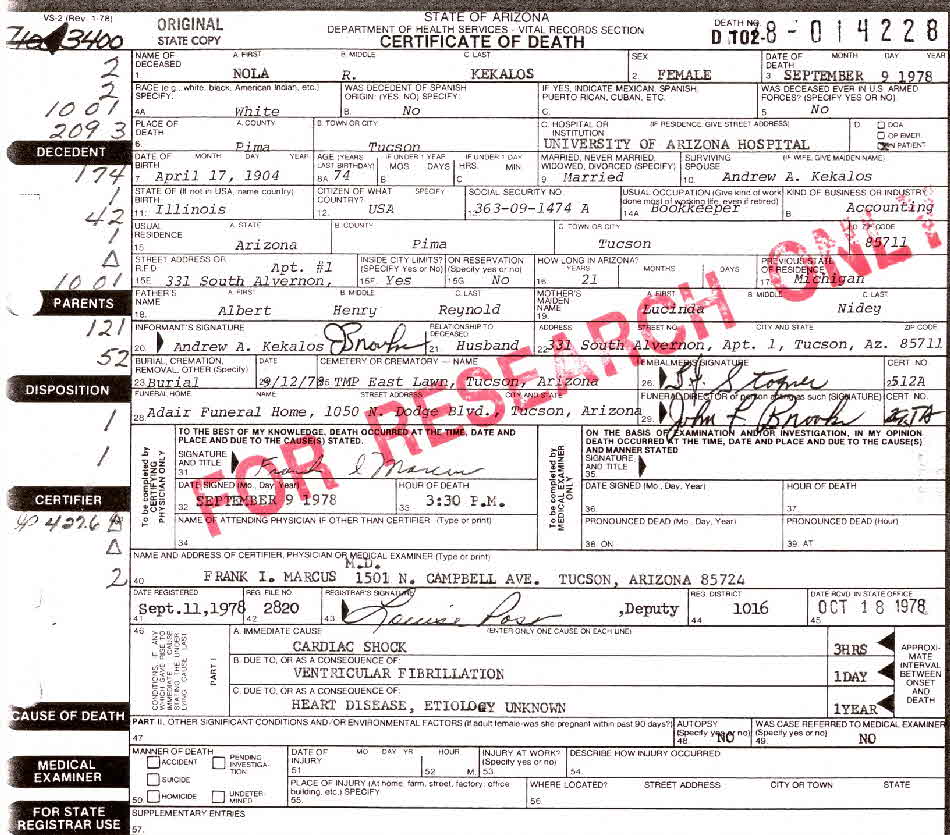 VS-2 (Rev. 1-78)
ORIGINAL
STATE COPY
STATE OF ARIZONA
DEPARTMENT OF HEALTH SERVICES - VITAL RECORDS SECTION
CERTIFICATE OF DEATH
DEATH NO.
D 102-8-014228
3400
NAME OF DECEASED A. FIRST B. MIDDLE C. LAST SEX DATE OF DEATH MONTH DAY YEAR
1. NOLA R. KEKALOS 2. FEMALE 3. SEPTEMBER 9 1978
RACE (e.g., white, black, American Indian, etc.) SPECIFY. WAS DECEDENT OF SPANISH ORIGIN: (YES NO) SPECIFY. IF YES, INDICATE MEXICAN, SPANISH, PUERTO RICAN, CUBAN, ETC. WAS DECEASED EVER IN U.S. ARMED FORCES? (SPECIFY YES OR NO).
4A White B. No C. 5. No
PLACE OF DEATH A. COUNTY B. TOWN OR CITY C. HOSPITAL OR INSTITUTION (IF RESIDENCE, GIVE STREET ADDRESS) D DOA OP EMER. IN PATIENT
6. Pima Tucson UNIVERSITY OF ARIZONA HOSPITAL
DECEDENT
DATE OF BIRTH MONTH DAY YEAR AGE (YEARS LAST BIRTHDAY) IF UNDER 1 YEAR MOS DAYS IF UNDER 1 DAY HRS. MIN MARRIED, NEVER MARRIED, WIDOWED, DIVORCED (SPECIFY) SURVIVING SPOUSE (IF WIFE, GIVE MAIDEN NAME)
7. April 17, 1904 8A 74 B C 9. Married 10. Andrew A. Kekalos
STATE OF (If not in USA, name country) BIRTH CITIZEN OF WHAT COUNTRY? SPECIFY SOCIAL SECURITY NO. USUAL OCCUPATION (Give kind of work done most of working life, even if retired) KIND OF BUSINESS OR INDUSTRY
11. Illinois 12. USA 13. 363-09-1474 A 14A Bookkeeper B Accounting
USUAL RESIDENCE A. STATE B. COUNTY C. TOWN OR CITY D. ZIP CODE
15. Arizona Pima Tucson 85711
STREET ADDRESS OR R.F.D INSIDE CITY LIMITS? (SPECIFY Yes or No) ON RESERVATION (Specify yes or no) HOW LONG IN ARIZONA? YEARS MONTHS DAYS PREVIOUS STATE OF RESIDENCE
15E Apt. #1 331 South Alvernon, 15F Yes 15G No 16. 21 17. Michigan
PARENTS
FATHER'S NAME A. FIRST B. MIDDLE C. LAST MOTHER'S MAIDEN NAME A. FIRST B. MIDDLE C. LAST
18. Albert Henry Reynold 19. Lucinda Nidey
INFORMANT'S SIGNATURE RELATIONSHIP TO DECEASED ADDRESS STREET NO. CITY AND STATE ZIP CODE
20. Andrew A. Kekalos 21. Husband 22. 331 South Alvernon, Apt. 1, Tucson, Az. 85711
BURIAL, CREMATION, REMOVAL, OTHER (Specify) DATE CEMETERY OR CREMATORY — NAME CITY AND STATE EMBALMER'S SIGNATURE CERT NO.
23. Burial 9/12/78 25 TMP East Lawn, Tucson, Arizona 26. 512A
DISPOSITION
FUNERAL HOME NAME STREET ADDRESS CITY AND STATE FUNERAL DIRECTOR or person acting as such (SIGNATURE) CERT NO.
28 Adair Funeral Home, 1050 N. Dodge Blvd., Tucson, Arizona 29. John L Brooks
To be completed by CERTIFYING PHYSICIAN ONLY
TO THE BEST OF MY KNOWLEDGE, DEATH OCCURRED AT THE TIME, DATE AND PLACE AND DUE TO THE CAUSE(S) STATED.
SIGNATURE AND TITLE
31. Frank I Marcus
DATE SIGNED (Mo., Day, Year) HOUR OF DEATH
32 SEPTEMBER 9 1978 33 3:30 P.M.
NAME OF ATTENDING PHYSICIAN IF OTHER THAN CERTIFIER (Type or print)
34.
To be completed by MEDICAL EXAMINER ONLY
ON THE BASIS OF EXAMINATION AND/OR INVESTIGATION, IN MY OPINION DEATH OCCURRED AT THE TIME, DATE AND PLACE AND DUE TO THE CAUSE(S) AND MANNER STATED
SIGNATURE AND TITLE
35.
DATE SIGNED (Mo., Day, Year) HOUR OF DEATH
36. 37.
PRONOUNCED DEAD (Mo., Day, Year) PRONOUNCED DEAD (Hour)
38. ON 39. AT
CERTIFIER
NAME AND ADDRESS OF CERTIFIER, PHYSICIAN OR MEDICAL EXAMINER (Type or print)
40 FRANK I. MARCUS M.D. 1501 N. CAMPBELL AVE. TUCSON, ARIZONA 85724
DATE REGISTERED REG. FILE NO. REGISTRAR'S SIGNATURE REG. DISTRICT DATE RCVD IN STATE OFFICE
41 Sept.11,1978 42 2820 43 ,Deputy 44 1016 45 OCT 18 1978
46 CONDITIONS, IF ANY WHICH GAVE RISE TO IMMEDIATE CAUSE STATING THE UNDERLYING CAUSE LAST
PART I
A. IMMEDIATE CAUSE (ENTER ONLY ONE CAUSE ON EACH LINE)
CARDIAC SHOCK 3HRS
B. DUE TO, OR AS A CONSEQUENCE OF:
VENTRICULAR FIBRILLATION 1DAY
C. DUE TO, OR AS A CONSEQUENCE OF:
HEART DISEASE, ETIOLOGY UNKNOWN 1YEAR
APPROXIMATE INTERVAL BETWEEN ONSET AND DEATH
CAUSE OF DEATH
PART II. OTHER SIGNIFICANT CONDITIONS AND/OR ENVIRONMENTAL FACTORS (If adult female-was she pregnant within past 90 days?) AUTOPSY (Specify yes or no) WAS CASE REFERRED TO MEDICAL EXAMINER (Specify yes or no)
47 48 NO 49. NO
MEDICAL EXAMINER
MANNER OF DEATH ACCIDENT PENDING INVESTIGATION SUICIDE HOMICIDE UNDETERMINED
50
DATE OF INJURY MO DAY YR HOUR INJURY AT WORK? (Specify yes or no) DESCRIBE HOW INJURY OCCURRED
51. 52 M. 53. 54.
PLACE OF INJURY (At home, farm, street, factory, office building, etc.) SPECIFY WHERE LOCATED? STREET ADDRESS CITY OR TOWN STATE
55. 56.
FOR STATE REGISTRAR USE
SUPPLEMENTARY ENTRIES
57.
2
2
1001
2093
174
1
42
1
1001
121
52
1
1
4276
2
FOR RESEARCH ONLY